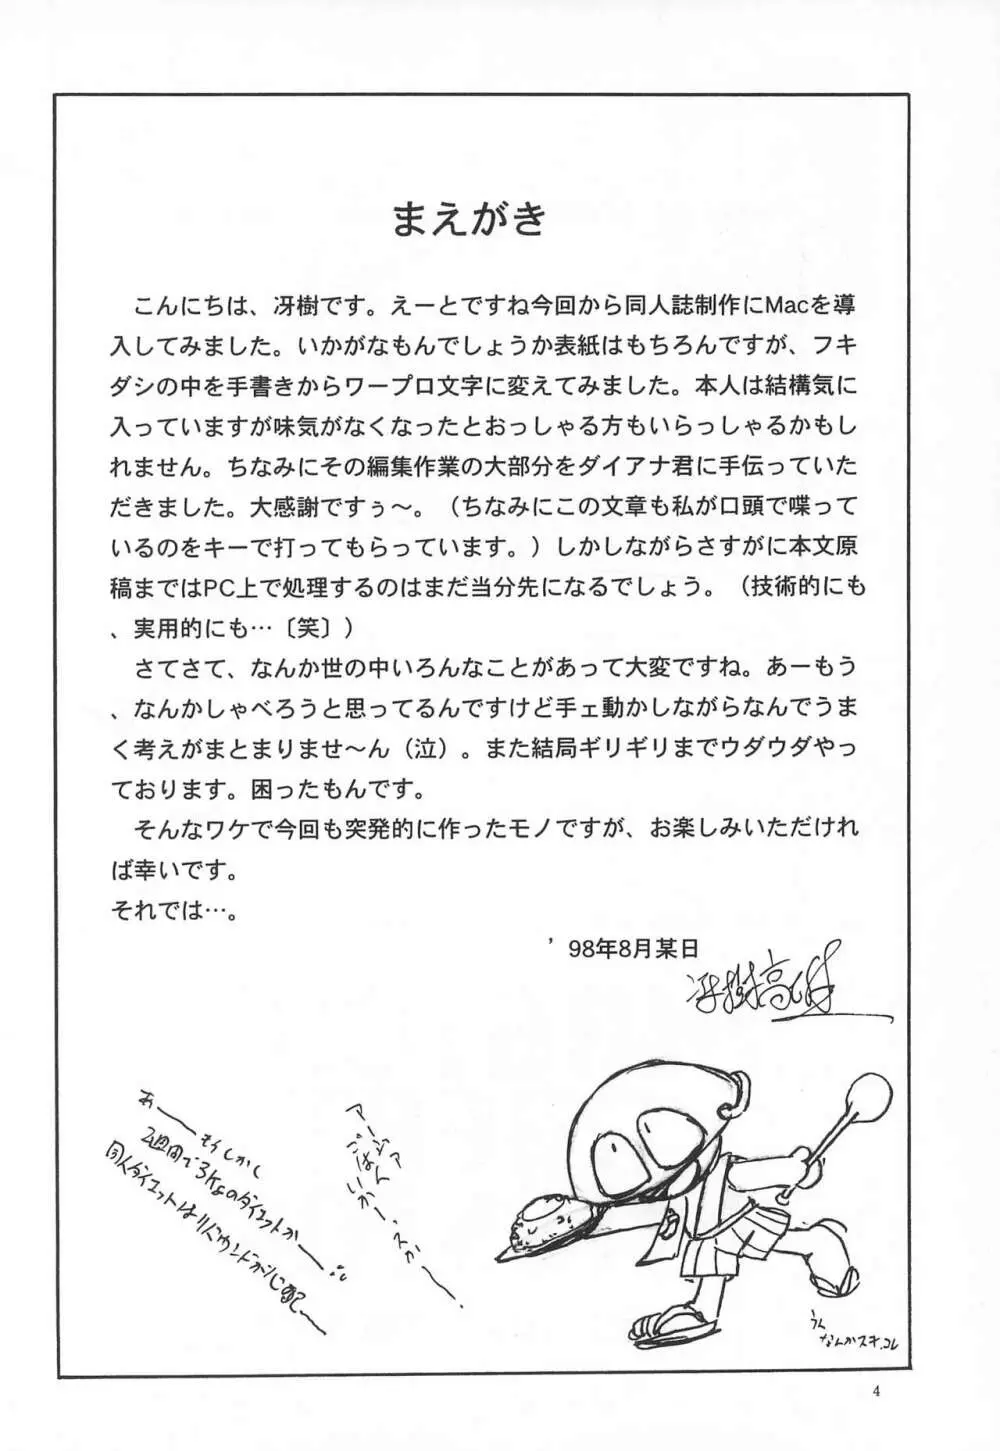 まえがき
　こんにちは、冴樹です。えーとですね今回から同人誌制作にMacを導
入してみました。いかがなもんでしょうか表紙はもちろんですが、フキ
ダシの中を手書きからワープロ文字に変えてみました。本人は結構気に
入っていますが味気がなくなったとおっしゃる方もいらっしゃるかもし
れません。ちなみにその編集作業の大部分をダイアナ君に手伝っていた
だきました。大感謝ですぅ〜。（ちなみにこの文章も私が口頭で喋って
いるのをキーで打ってもらっています。）しかしながらさすがに本文原
稿まではPC上で処理するのはまだ当分先になるでしょう。（技術的にも
、実用的にも…〔笑〕）
　さてさて、なんか世の中いろんなことがあって大変ですね。あーもう
、なんかしゃべろうと思ってるんですけど手ェ動かしながらなんでうま
く考えがまとまりませ〜ん（泣）。また結局ギリギリまでウダウダやっ
ております。困ったもんです。
　そんなワケで今回も突発的に作ったモノですが、お楽しみいただけれ
ば幸いです。
それでは…。
’98年8月某日
冴樹高雄
アージア
ごはん
いかーっスかー。
あー
もしかし
2週間で3kgのダイエットかー
同人ダイエットはリバウンドが心配ー
うん
なんかスキ、コレ
4